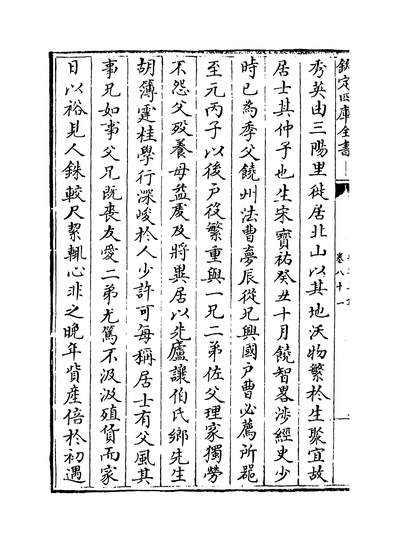 欽定四庫全書
卷八十一
秀英由三陽里徙居北山以其地沃物繁於生聚宜故
居士其仲子也生宋寳祐癸丑十月饒智畧涉經史少
時已為季父饒州法曹夢辰從兄興國户曹必薦所器
至元丙子以後户役繁重與一兄二弟佐父理家獨勞
不怨父殁養母益虔及將異居以先廬讓伯氏鄉先生
胡簿霆桂學行深峻於人少許可每稱居士有父風其
事兄如事父兄既喪友愛二弟尤篤不汲汲殖貨而家
日以裕見人銖較尺絜輒心非之晚年貲産倍於初遇